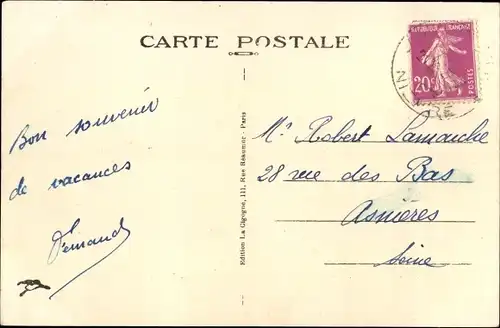 CARTE POSTALE
REPUBLIQUE FRANÇAISE
20c
POSTES
Bon souvenir
de vacances
Fernand
Edition La Gigogne, 111, Rue Réaumur - Paris
Mr Robert Lamarche
28 rue des Bas
Asnières
Seine